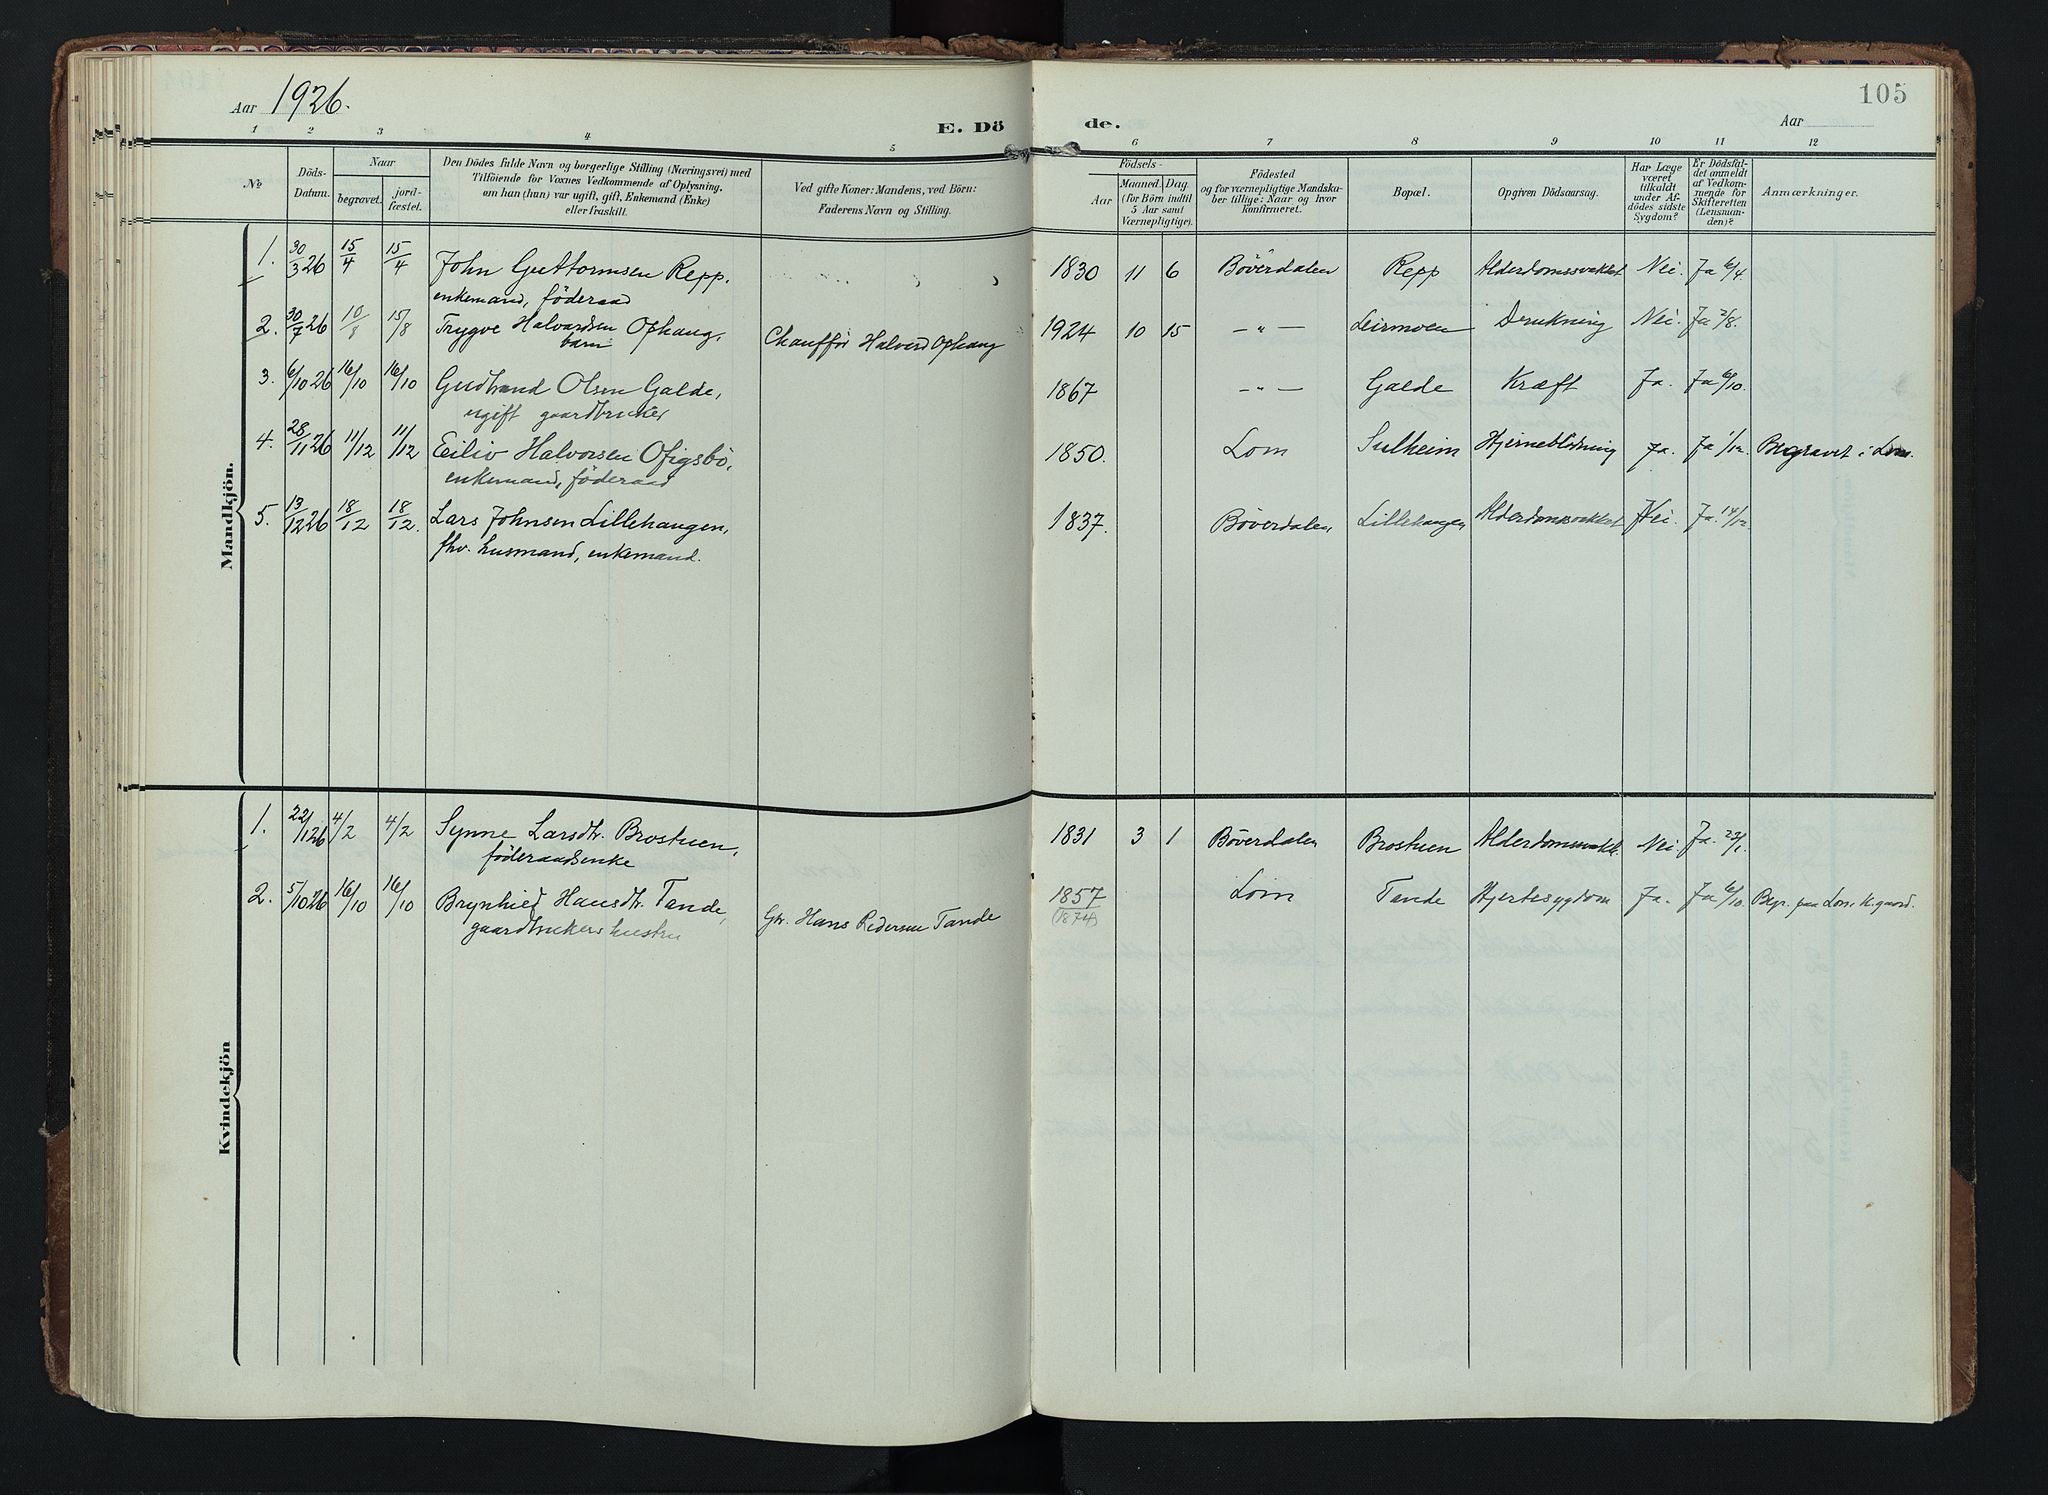 Aar 1926.
E. Dö
de.
105
Aar
1 2 3 4 5 6 7 8 9 10 11 12
№
Döds-
Datum.
Naar
begravet.
jord-
fæstet.
Den Dödes fulde Navn og borgerlige Stilling (Næringsvei) med
Tilföiende for Voxnes Vedkommende af Oplysning,
om han (hun) var ugift, gift, Enkemand (Enke)
eller fraskilt.
Ved gifte Koner: Mandens, ved Börn:
Faderens Navn og Stilling.
Födsels-
Aar
Maaned. Dag.
(for Börn indtil
5 Aar samt
Værnepligtige).
Födested
og for værnepligtige Mandska-
ber tillige: Naar og hvor
konfirmeret.
Bopæl.
Opgiven Dödsaarsag.
Har Læge
været
tilkaldt
under Af-
dödes sidste
Sygdom?
Er Dödsfal-
det anmeldt
af Vedkom-
mende for
Skifteretten
(Lensman-
den)?
Anmærkninger.
Mandkjön.
1. 30/3 26 15/4 15/4 John Guttormsen Repp, 1830 11 6 Bøverdalen Repp Alderdomssvakhet Nei. Ja 6/4.
enkemand, föderaad
2. 30/7 26 10/8 15/8 Trygve Halvardsen Ophaug, Chauffør Halvard Ophaug 1924 10 15 — " — Leirmoen Drukning Nei. Ja 2/8.
barn
3. 6/10 26 16/10 16/10 Gudbrand Olsen Galde, 1867 — " — Galde Kræft Ja. Ja 6/10.
ugift gaardbruker
4. 28/11 26 11/12 11/12 Eiliv Halvorsen Ofigsbö, 1850. Lom Sulheim Hjerneblödning Ja. Ja 1/12. Begravet i Lom.
enkemand, föderaad
5. 13/12 26 18/12 18/12. Lars Johnsen Lillehaugen, 1837. Bøverdalen, Lillehaugen Alderdomssvakhet Nei. Ja. 14/12
fhv. husmand, enkemand.
Kvindekjön
1. 22/1 26 4/2 4/2 Synne Larsdtr. Brostuen, 1831 3 1 Bøverdalen Brostuen Alderdomssvakh. Nei. Ja. 23/1.
föderaadsenke
2. 5/10 26 16/10 16/10 Brynhild Hansdtr. Tande, Gbr. Hans Pedersen Tande 1857 Lom Tande Hjertesygdom Ja. Ja 6/10. Begr. paa Lom k.gaard.
gaardbrukers hustru (1874)